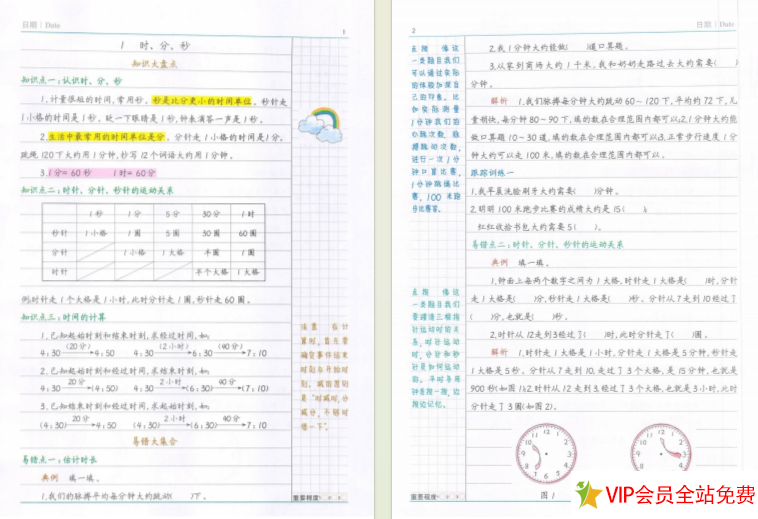 日期 | Date
1
1 时、分、秒
知识大盘点
知识点一:认识时、分、秒
1.计量很短的时间,常用秒。秒是比分更小的时间单位。秒针走
1小格的时间是1秒。眨一下眼睛是1秒,钟表滴答一声是1秒。
2.生活中最常用的时间单位是分。分针走1小格的时间是1分。
跳绳120下大约用1分钟,抄写12个词语大约用1分钟。
3.1分=60秒 1时=60分
知识点二:时针、分针、秒针的运动关系
1秒 1分 5分 30分 1时
秒针 1小格 1圈 5圈 30圈 60圈
分针 1小格 1大格 半圈 1圈
时针 半个大格 1大格
例:时针走1个大格是1小时,此时分针走1圈,秒针走60圈。
知识点三:时间的计算
1.已知起始时刻和结束时刻,求经过时间,如:
4:30 (20分) 4:50 4:30 (2小时) 6:30 (40分) 7:10
2.已知起始时刻和经过时间,求结束时刻,如:
4:30 20分 (4:50) 4:30 2小时 (6:30) 40分 (7:10)
3.已知结束时刻和经过时间,求起始时刻,如:
(4:30) 20分 4:50 (4:30) 2小时 (6:30) 40分 7:10
易错大集合
易错点一:估计时长
典例 填一填。
1.我们的脉搏平均每分钟大约跳动( )下。
注意 在计
算时,首先要
确定事件结束
时刻与开始时
刻。减的原则
是“时减时,分
减分,不够时
借一下”。
重要程度
2
日期 | Date
点拨 像这
一类题目我们
可以通过实际
的体验加深自
己的印象。比
如实际测量
1分钟我们的
心跳次数、脉
搏跳动次数,
进行一次1分
钟口算比赛、
1分钟跳绳比
赛、100米跑
步比赛等。
2.我1分钟大约能做( )道口算题。
3.从家到商场大约1千米,我和奶奶走路过去大约需要( )
分钟。
解析 1.我们脉搏每分钟大约跳动60~120下,平均约72下,儿
童稍快,每分钟80~90下,填的数在合理范围内都可以;2.1分钟大约能
做口算题10~30道,填的数在合理范围内都可以;3.正常步行速度1分
钟大约可以走100米,填的数在合理范围内都可以。
跟踪训练一
1.我早晨洗脸刷牙大约需要( )分钟。
2.明明100米跑步比赛的成绩大约是15( ),
红红收拾书包大约需要5( )。
易错点二:时针、分针、秒针的运动关系
典例 填一填。
1.钟面上每两个数字之间为1大格,时针走1大格是( )时,分针
走1大格是( )分,秒针走1大格是( )秒。分针从7走到10经过了
( )分,也就是( )秒。
2.时针从12走到3经过了( )时,此时分针走了( )圈。
解析 1.时针走1大格是1小时,分针走1大格是5分钟,秒针走
1大格是5秒。分针从7走到10,走过了3个大格,是15分钟,也就是
900秒(如图1);2.时针从12走到3,经过了3个大格,也就是3小时,此时
分针走了3圈(如图2)。
点拨 像这
一类题目我们
要理清三根指
针运动时的关
系,时针运动
时,分针和秒
针是如何运动
的。平时多用
钟表拨一拨,边
拨边记忆。
图1
重要程度
VIP会员全站免费